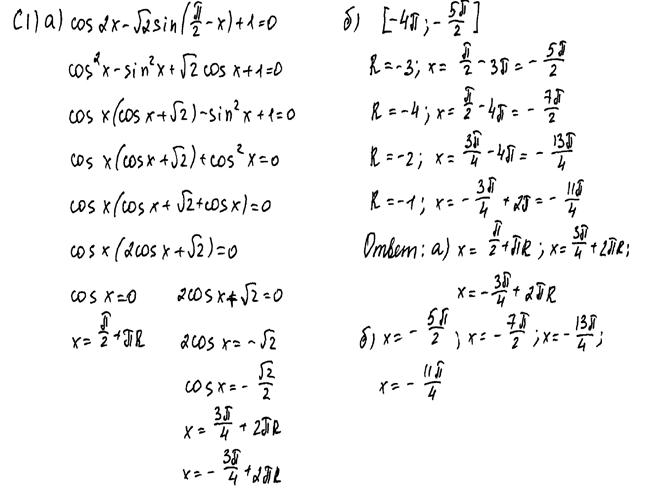 C1) а) cos 2x - √2 sin(π/2 - x) + 1 = 0
cos²x - sin²x + √2 cos x + 1 = 0
cos x(cos x + √2) - sin²x + 1 = 0
cos x(cos x + √2) + cos²x = 0
cos x(cos x + √2 + cos x) = 0
cos x(2cos x + √2) = 0
cos x = 0    2cos x + √2 = 0
x = π/2 + πR    2cos x = -√2
cos x = - √2/2
x = 3π/4 + 2πR
x = - 3π/4 + 2πR
б) [-4π; - 5π/2]
R = -3; x = π/2 - 3π = - 5π/2
R = -4; x = π/2 - 4π = - 7π/2
R = -2; x = 3π/4 - 4π = - 13π/4
R = -1; x = - 3π/4 + 2π = - 11π/4
Ответ: а) x = π/2 + πR; x = 3π/4 + 2πR;
x = - 3π/4 + 2πR
б) x = - 5π/2; x = - 7π/2; x = - 13π/4;
x = - 11π/4